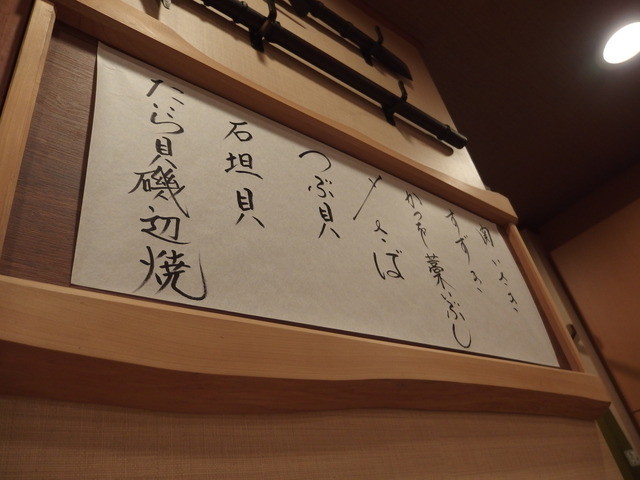 いさき
すずき
かつお藁いぶし
〆さば
つぶ貝
石垣貝
たいら貝磯辺焼